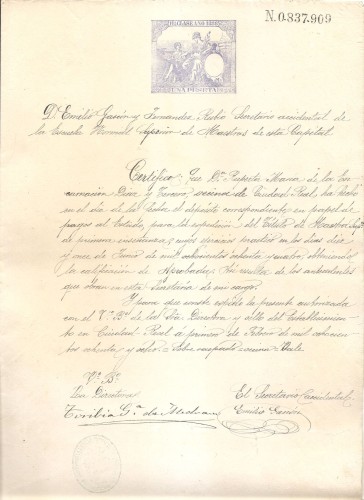 N.0.837.909
CLASE UNDECIMA
UNA PESETA
D. Emilio Garzón y Fernandez Rubio Secretario accidental de
la Escuela Normal Superior de Maestras de esta Capital.
Certifico: Que Dª. Ruperta Maria de la En-
carnacion Diaz y Trenado, vecina de Ciudad Real, ha hecho
en el dia de la fecha el depósito correspondiente en papel de
pagos al Estado, para la expedicion del Título de Maestra
de primera enseñanza, cuyos ejercicios practicó en los dias diez
y once de Junio de mil ochocientos ochenta y cuatro, obteniendo
la calificación de Aprobada; Asi resulta de los antecedentes
que obran en esta Secretaria de mi cargo.
Y para que conste expido la presente autorizada
con el Vº. Bº. de la Sra. Directora y sello del Establecimien-
to en Ciudad Real á primero de Febrero de mil ochocien-
tos ochenta y ocho. Sobre raspado = vecina = Vale
Vº. Bº.
La Directora
El Secretario accidental
Toribia Gª. de Medrano
Emilio Garzón